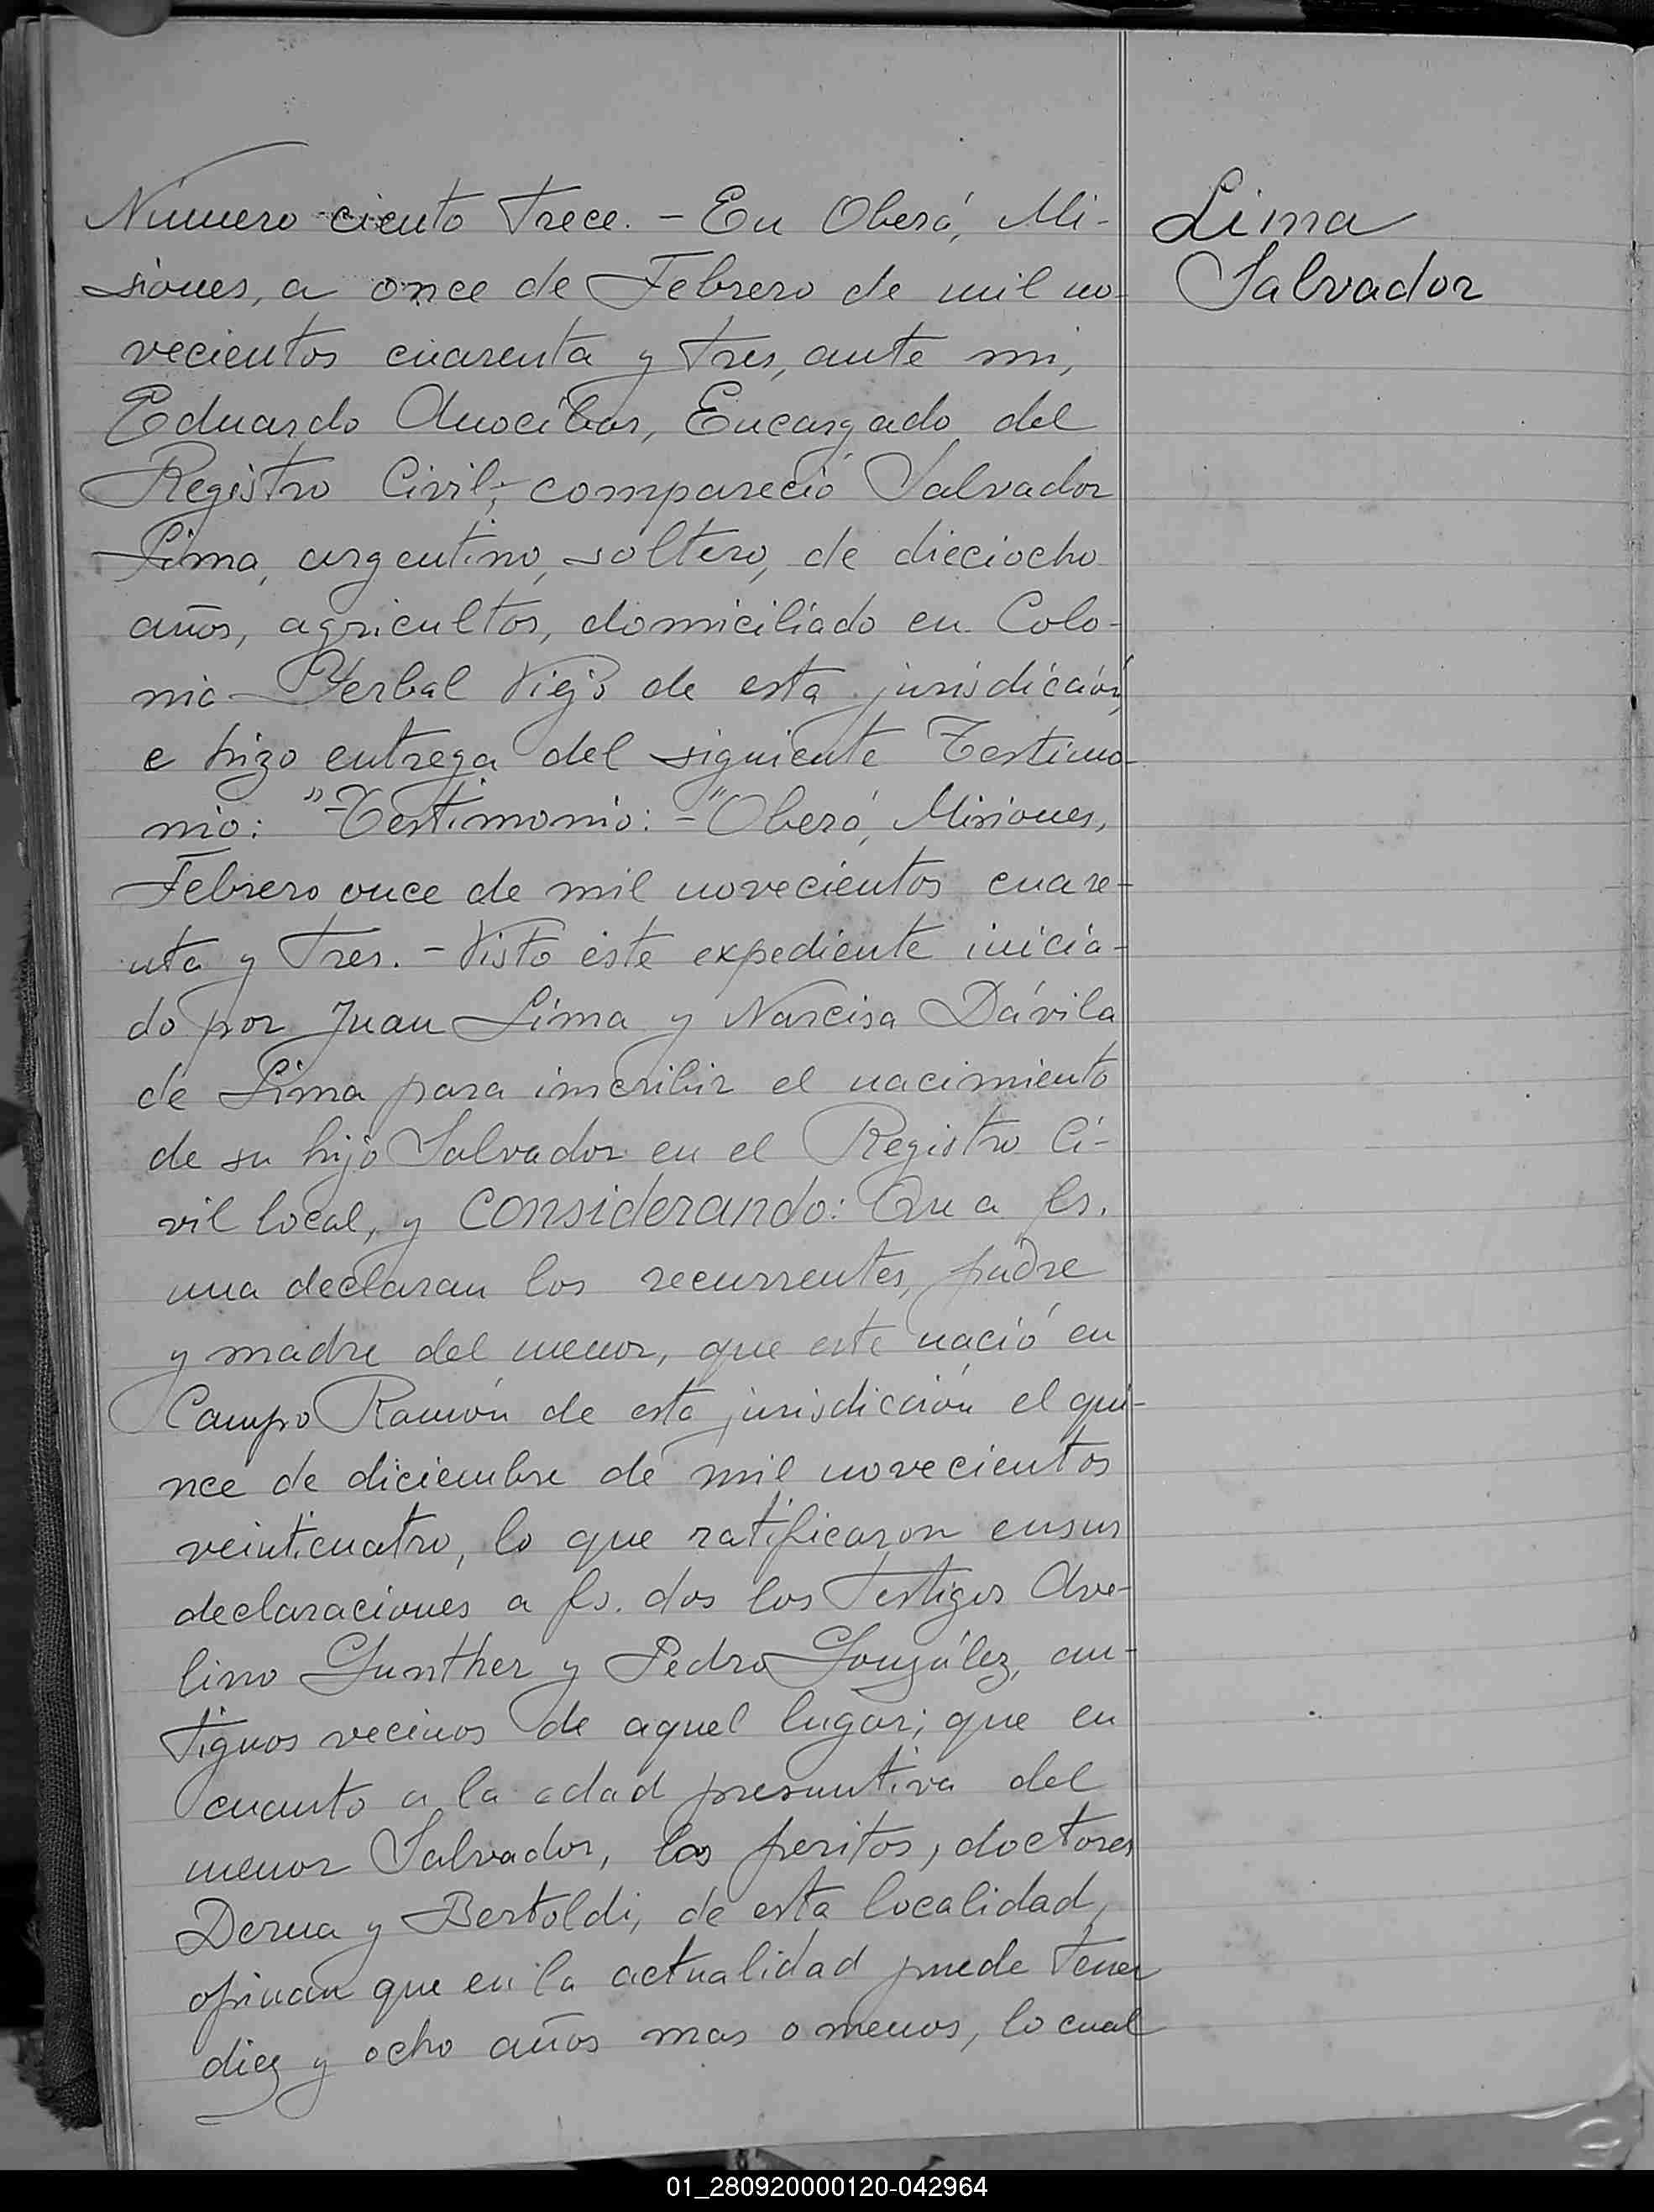 Lima
Salvador
Número ciento trece. - En Oberá, Mi-
siones, a once de Febrero de mil no-
vecientos cuarenta y tres, ante mi,
Eduardo Anocíbar, Encargado del
Registro Civil; compareció Salvador
Lima, argentino, soltero, de dieciocho
años, agricultor, domiciliado en Colo-
nia Yerbal Viejo de esta jurisdicción,
e hizo entrega del siguiente Testimo-
nio: "Testimonio: - "Oberá, Misiones,
Febrero once de mil novecientos cuare-
nta y tres. - Visto éste expediente inicia-
do por Juan Lima y Narcisa Dávila
de Lima para inscribir el nacimiento
de su hijo Salvador en el Registro Ci-
vil local, y Considerando: Que a fs.
una declaran los recurrentes, padre
y madre del menor, que este nació en
Campo Ramón de esta jurisdicción el qui-
nce de diciembre de mil novecientos
veinticuatro, lo que ratificaron ensus
declaraciones a fs. dos los testigos Ave-
lino Gunther y Pedro González, an-
tiguos vecinos de aquel lugar; que en
cuanto a la edad presuntiva del
menor Salvador, los peritos, doctores
Derna y Bertoldi, de esta localidad,
opinan que en la actualidad puede tener
diez y ocho años mas o menos, lo cual
01_280920000120-042964